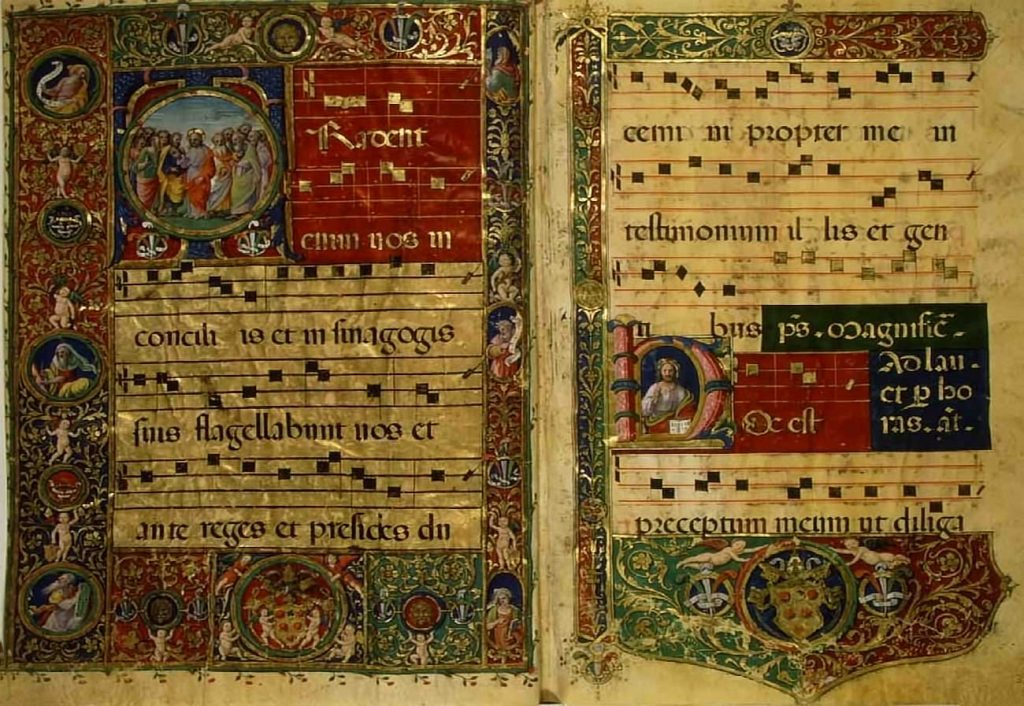 Radent
enim uos in
concili is et in sinagogis
suis flagellabunt uos et
ante reges et presides du
cemi ni propter me in
testimonium il lis et gen
ti bus ps. Magnific̄.
Ad lau-
et p ho
ras. at.
Oc est
preceptum meum ut diliga